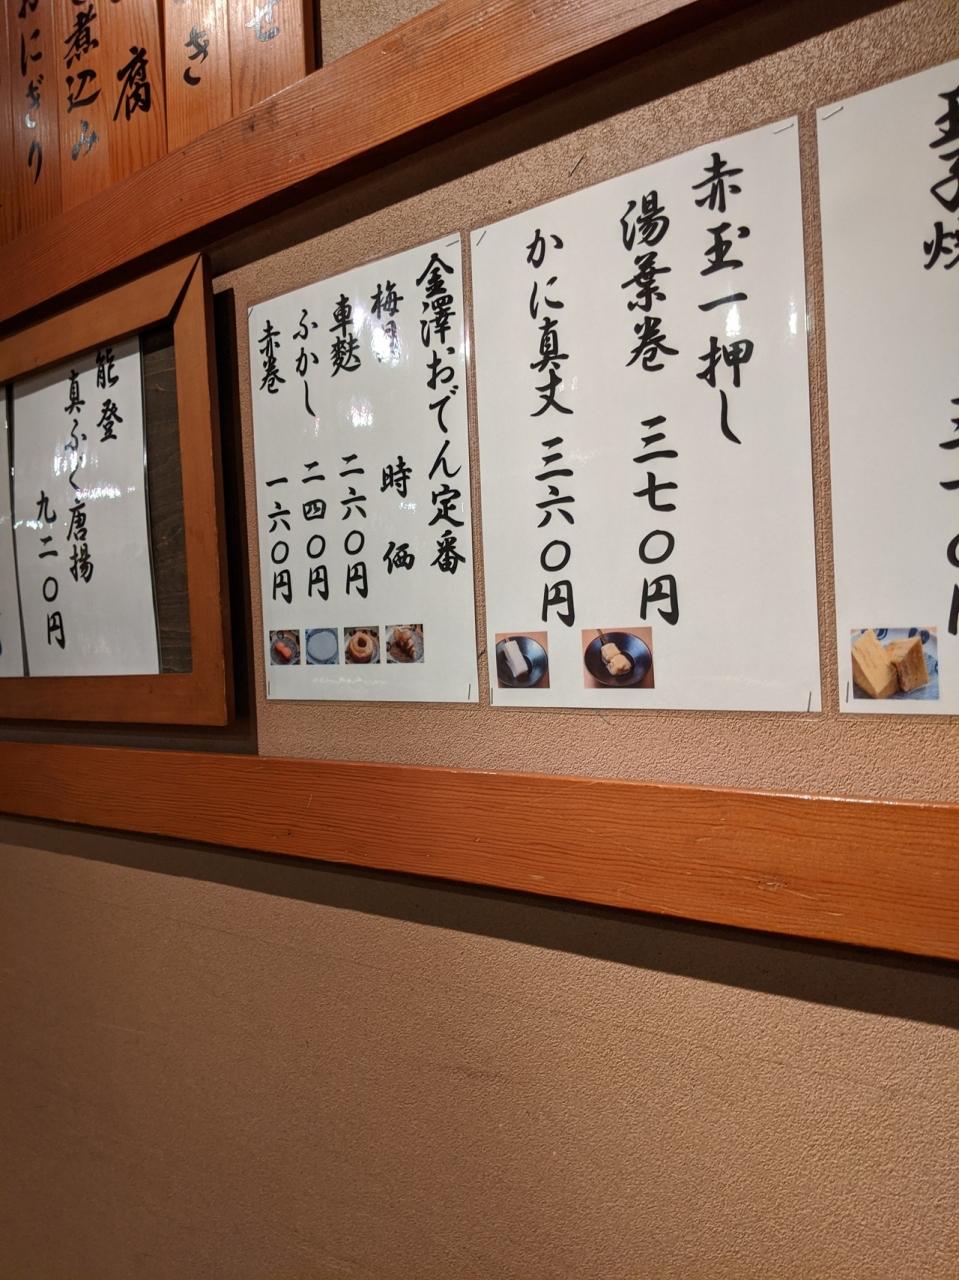 玉子焼
赤玉一押し
湯葉巻 三七〇円
かに真丈 三六〇円
金澤おでん定番
梅貝 時価
車麩 二六〇円
ふかし 二四〇円
赤巻 一六〇円
能登
真ふぐ唐揚
九二〇円
腐
煮込み
おにぎり